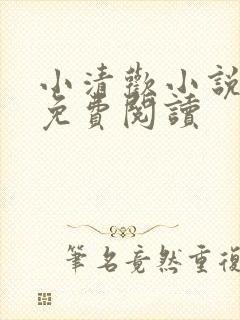 小清歡小說
免費閱讀
筆名竟然重復